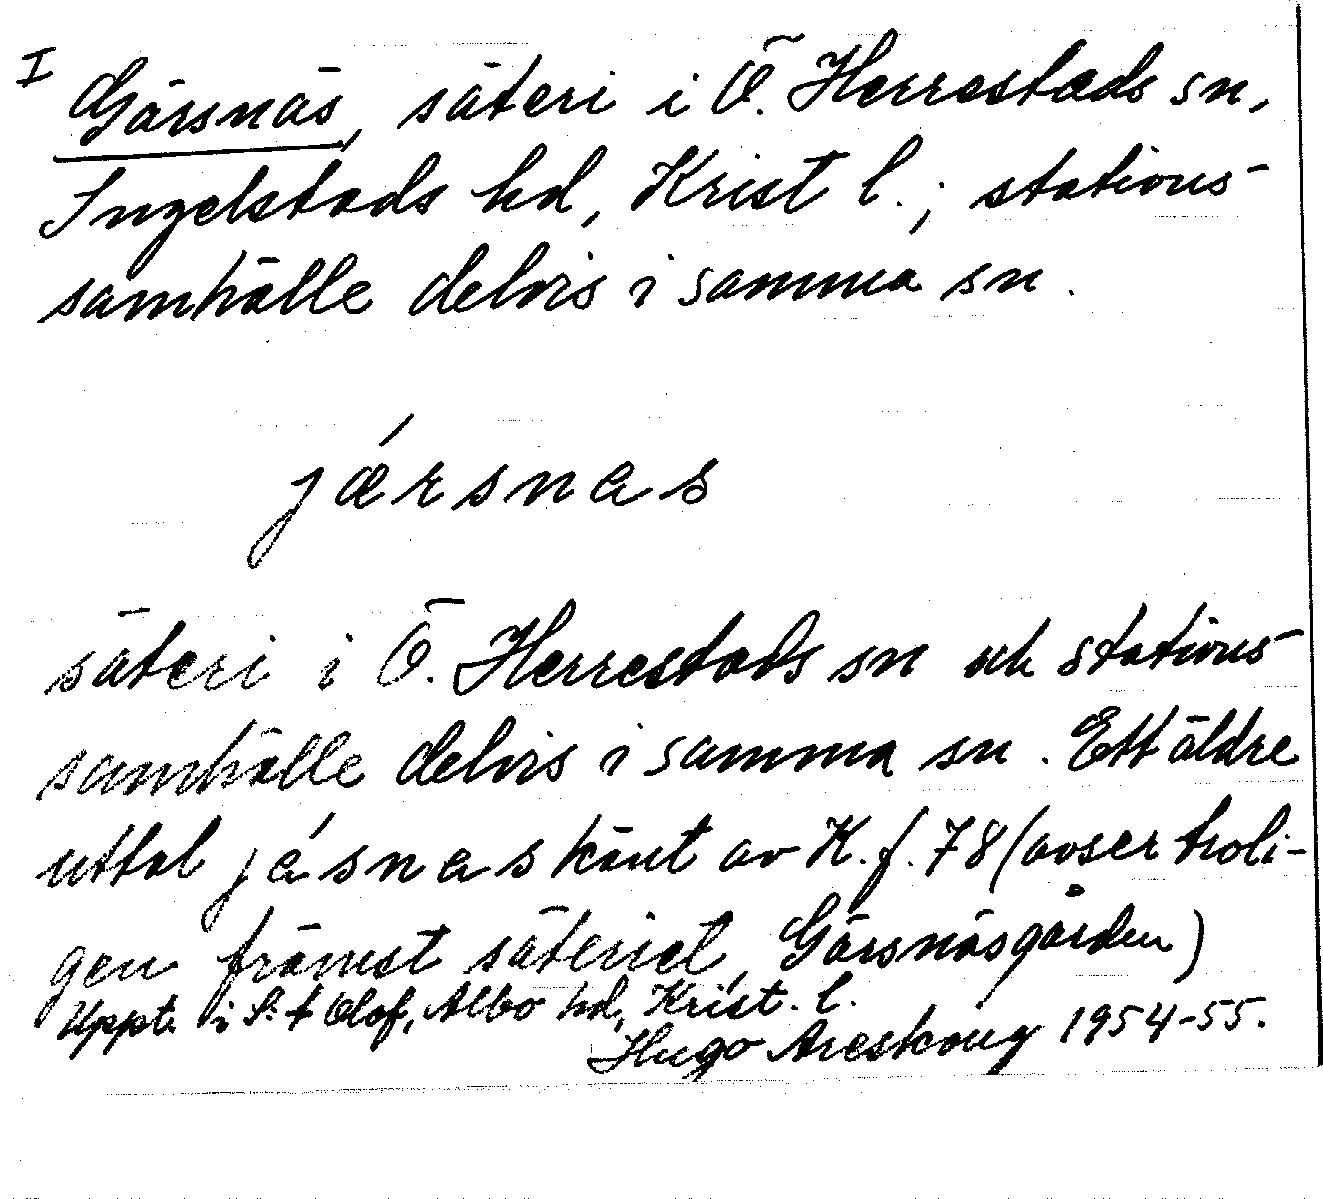 I
Gärsnäs, säteri i Ö. Herrestads sn,
Ingelstads hd, Krist l.; stations-
samhälle delvis i samma sn.
jǽrsnas
säteri i Ö. Herrestads sn och stations-
samhälle delvis i samma sn. Ett äldre
uttal jásnas känt av K. f. 78 (avser troli-
gen främst säteriet, Gärsnäsgården)
Uppt. i S:t Olof, Albo hd, Krist. l.
Hugo Areskoug 1954-55.